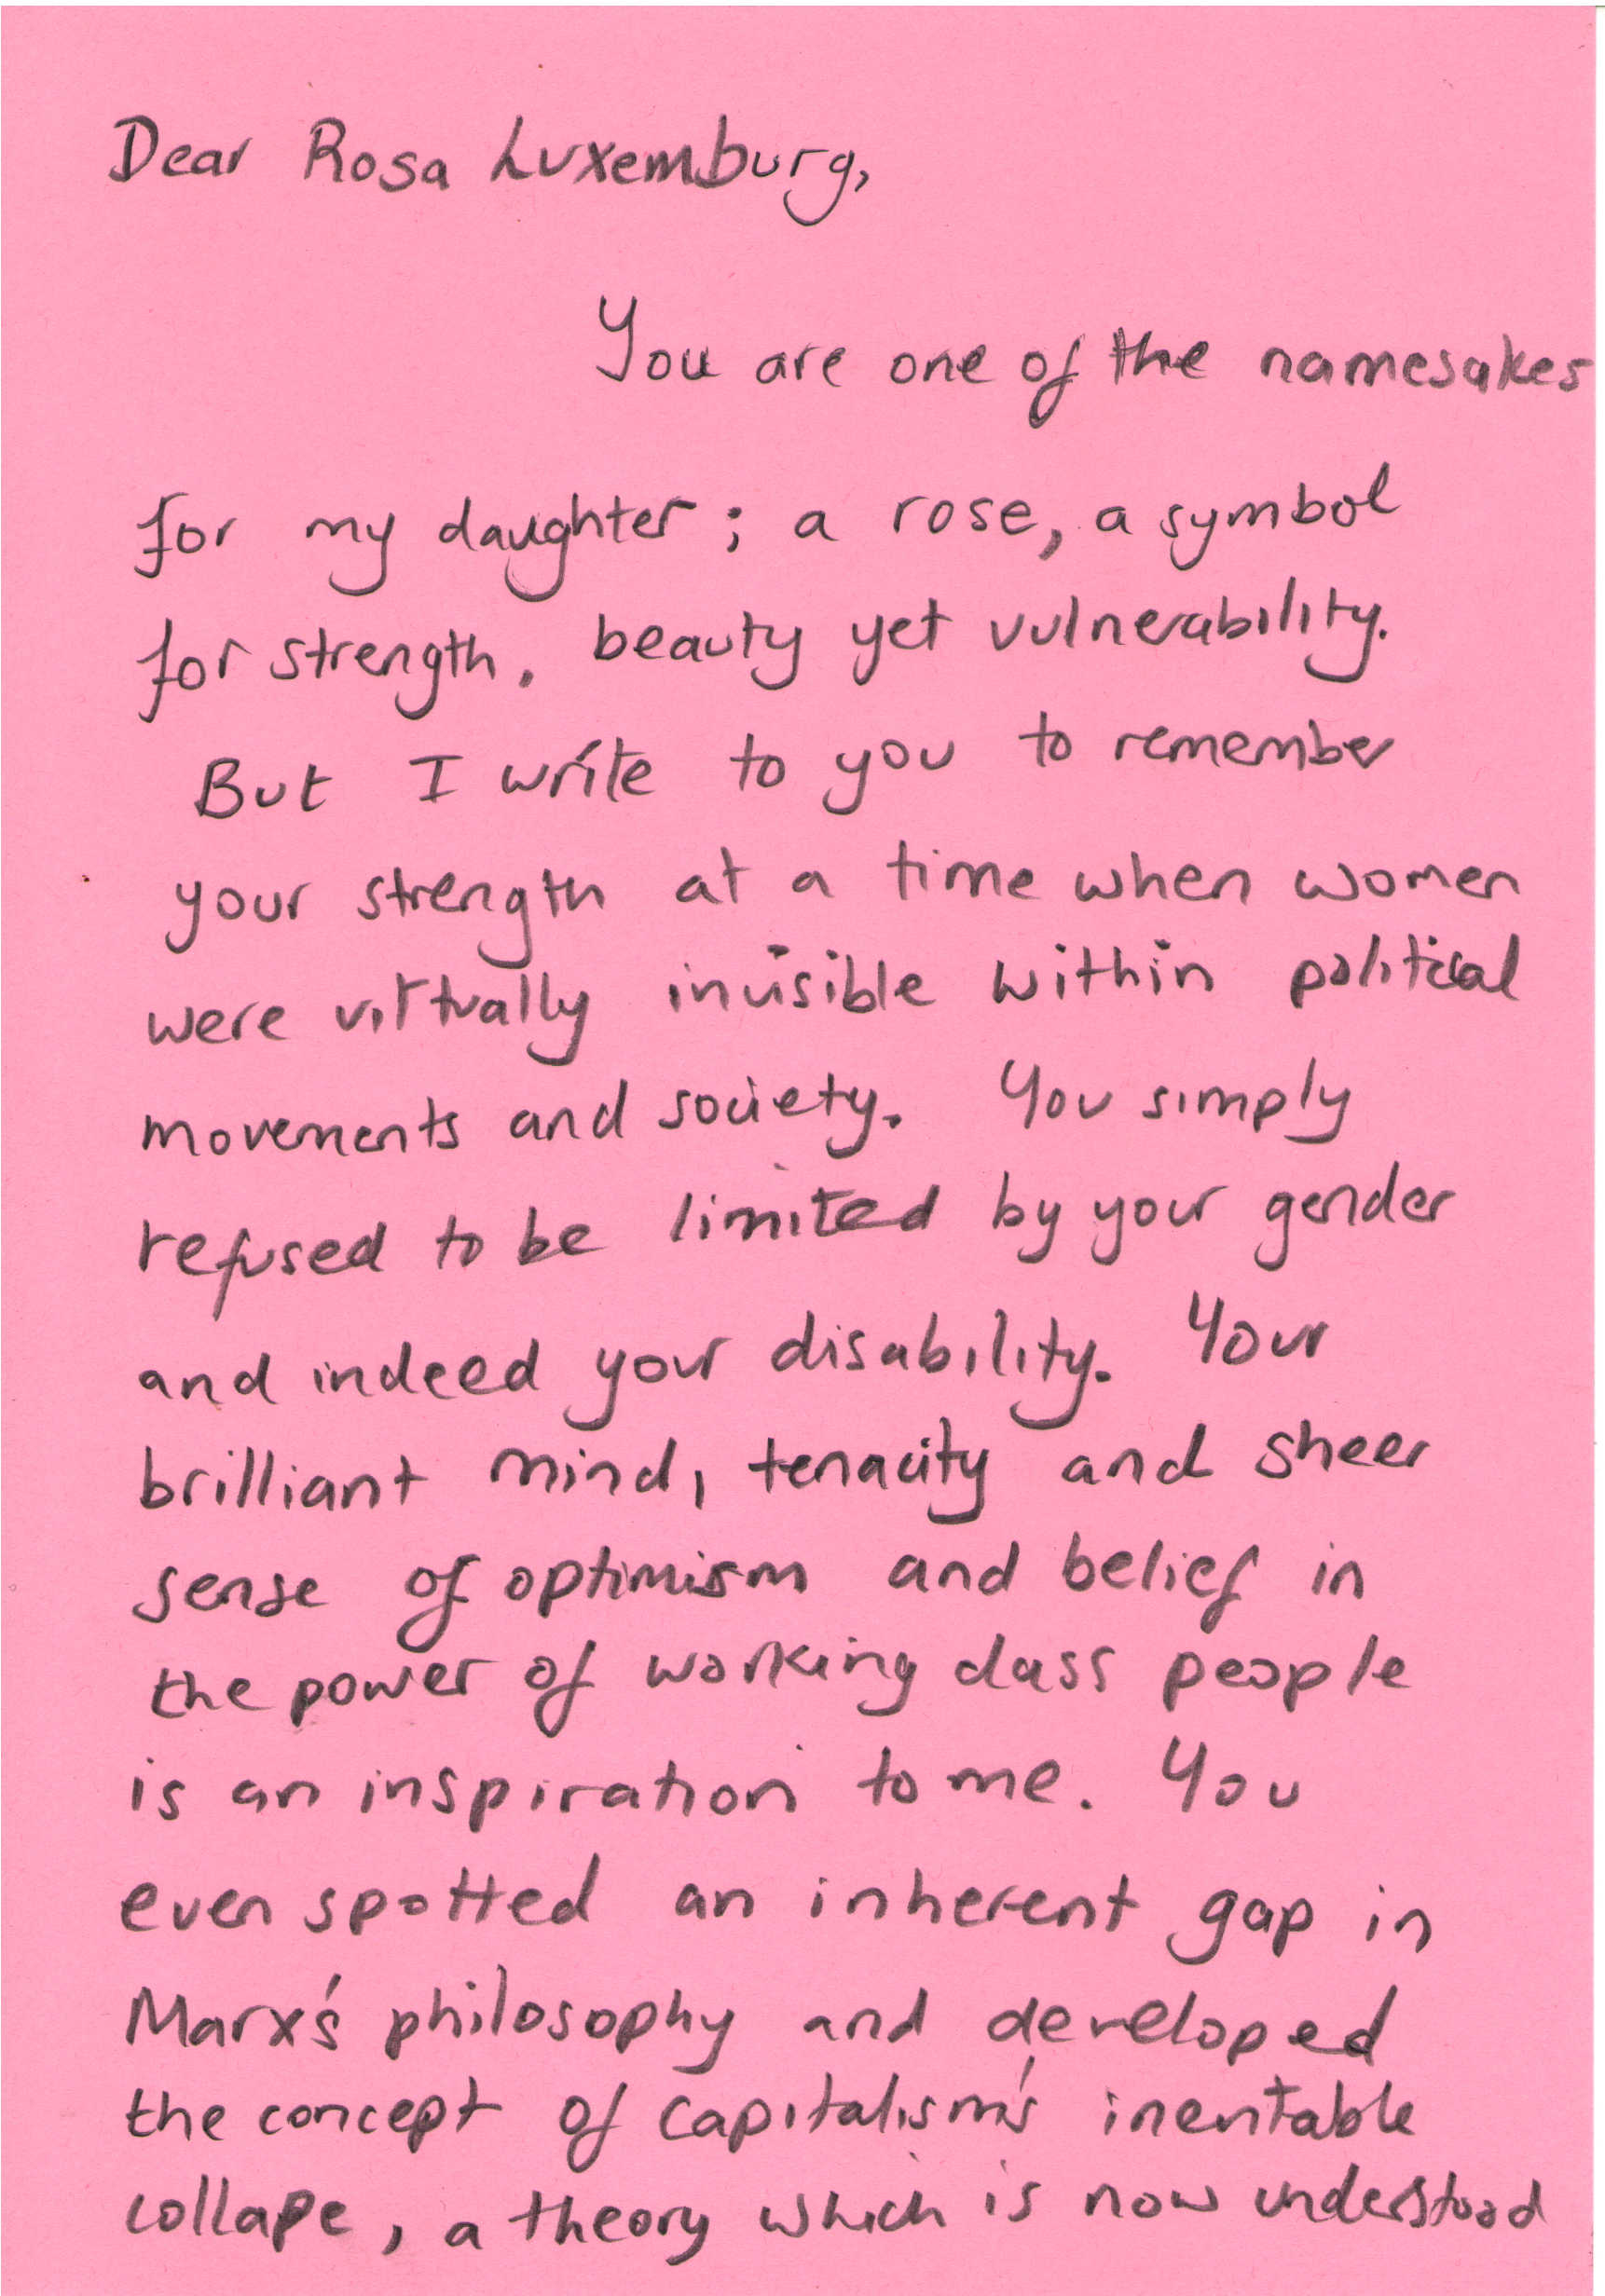 Dear Rosa Luxemburg,
You are one of the namesakes
for my daughter; a rose, a symbol
for strength, beauty yet vulnerability.
But I write to you to remember
your strength at a time when women
were virtually invisible within political
movements and society. You simply
refused to be limited by your gender
and indeed your disability. Your
brilliant mind, tenacity and sheer
sense of optimism and belief in
the power of working class people
is an inspiration to me. You
even spotted an inherent gap in
Marx's philosophy and developed
the concept of capitalism's inevitable
collape, a theory which is now understood